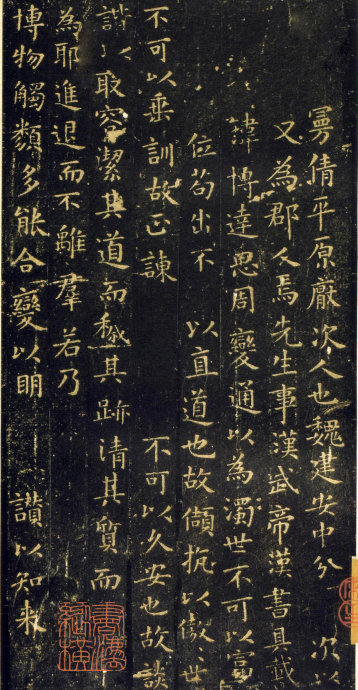 曼倩平原厭次人也魏建安中分 次以
又為郡人焉先生事漢武帝漢書具載
瑋博達思周變通以為濁世不可以富
位苟出不 以直道也故頡抗以傲世
不可以垂訓故正諫 不可以久安也故談
諧以取容潔其道而穢其跡清其質而
為耶進退而不離羣若乃
博物觸類多能合變以明 讚以知來